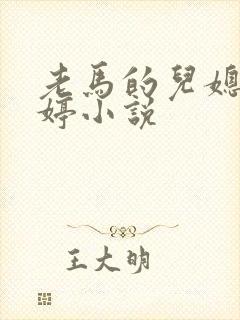 老馬的兒媳
婷小說
王大明